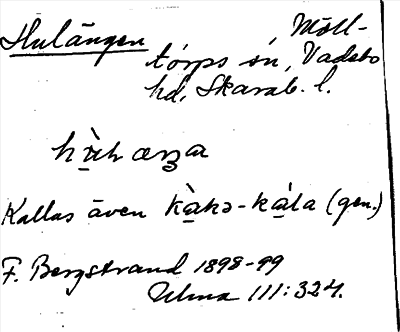 Hulängen
Möll-
torps sn, Vadsbo
hd, Skarab. l.
Kallas även kàkə-kála (gen.)
F. Bergstrand 1898-99
Ulma 111:324.